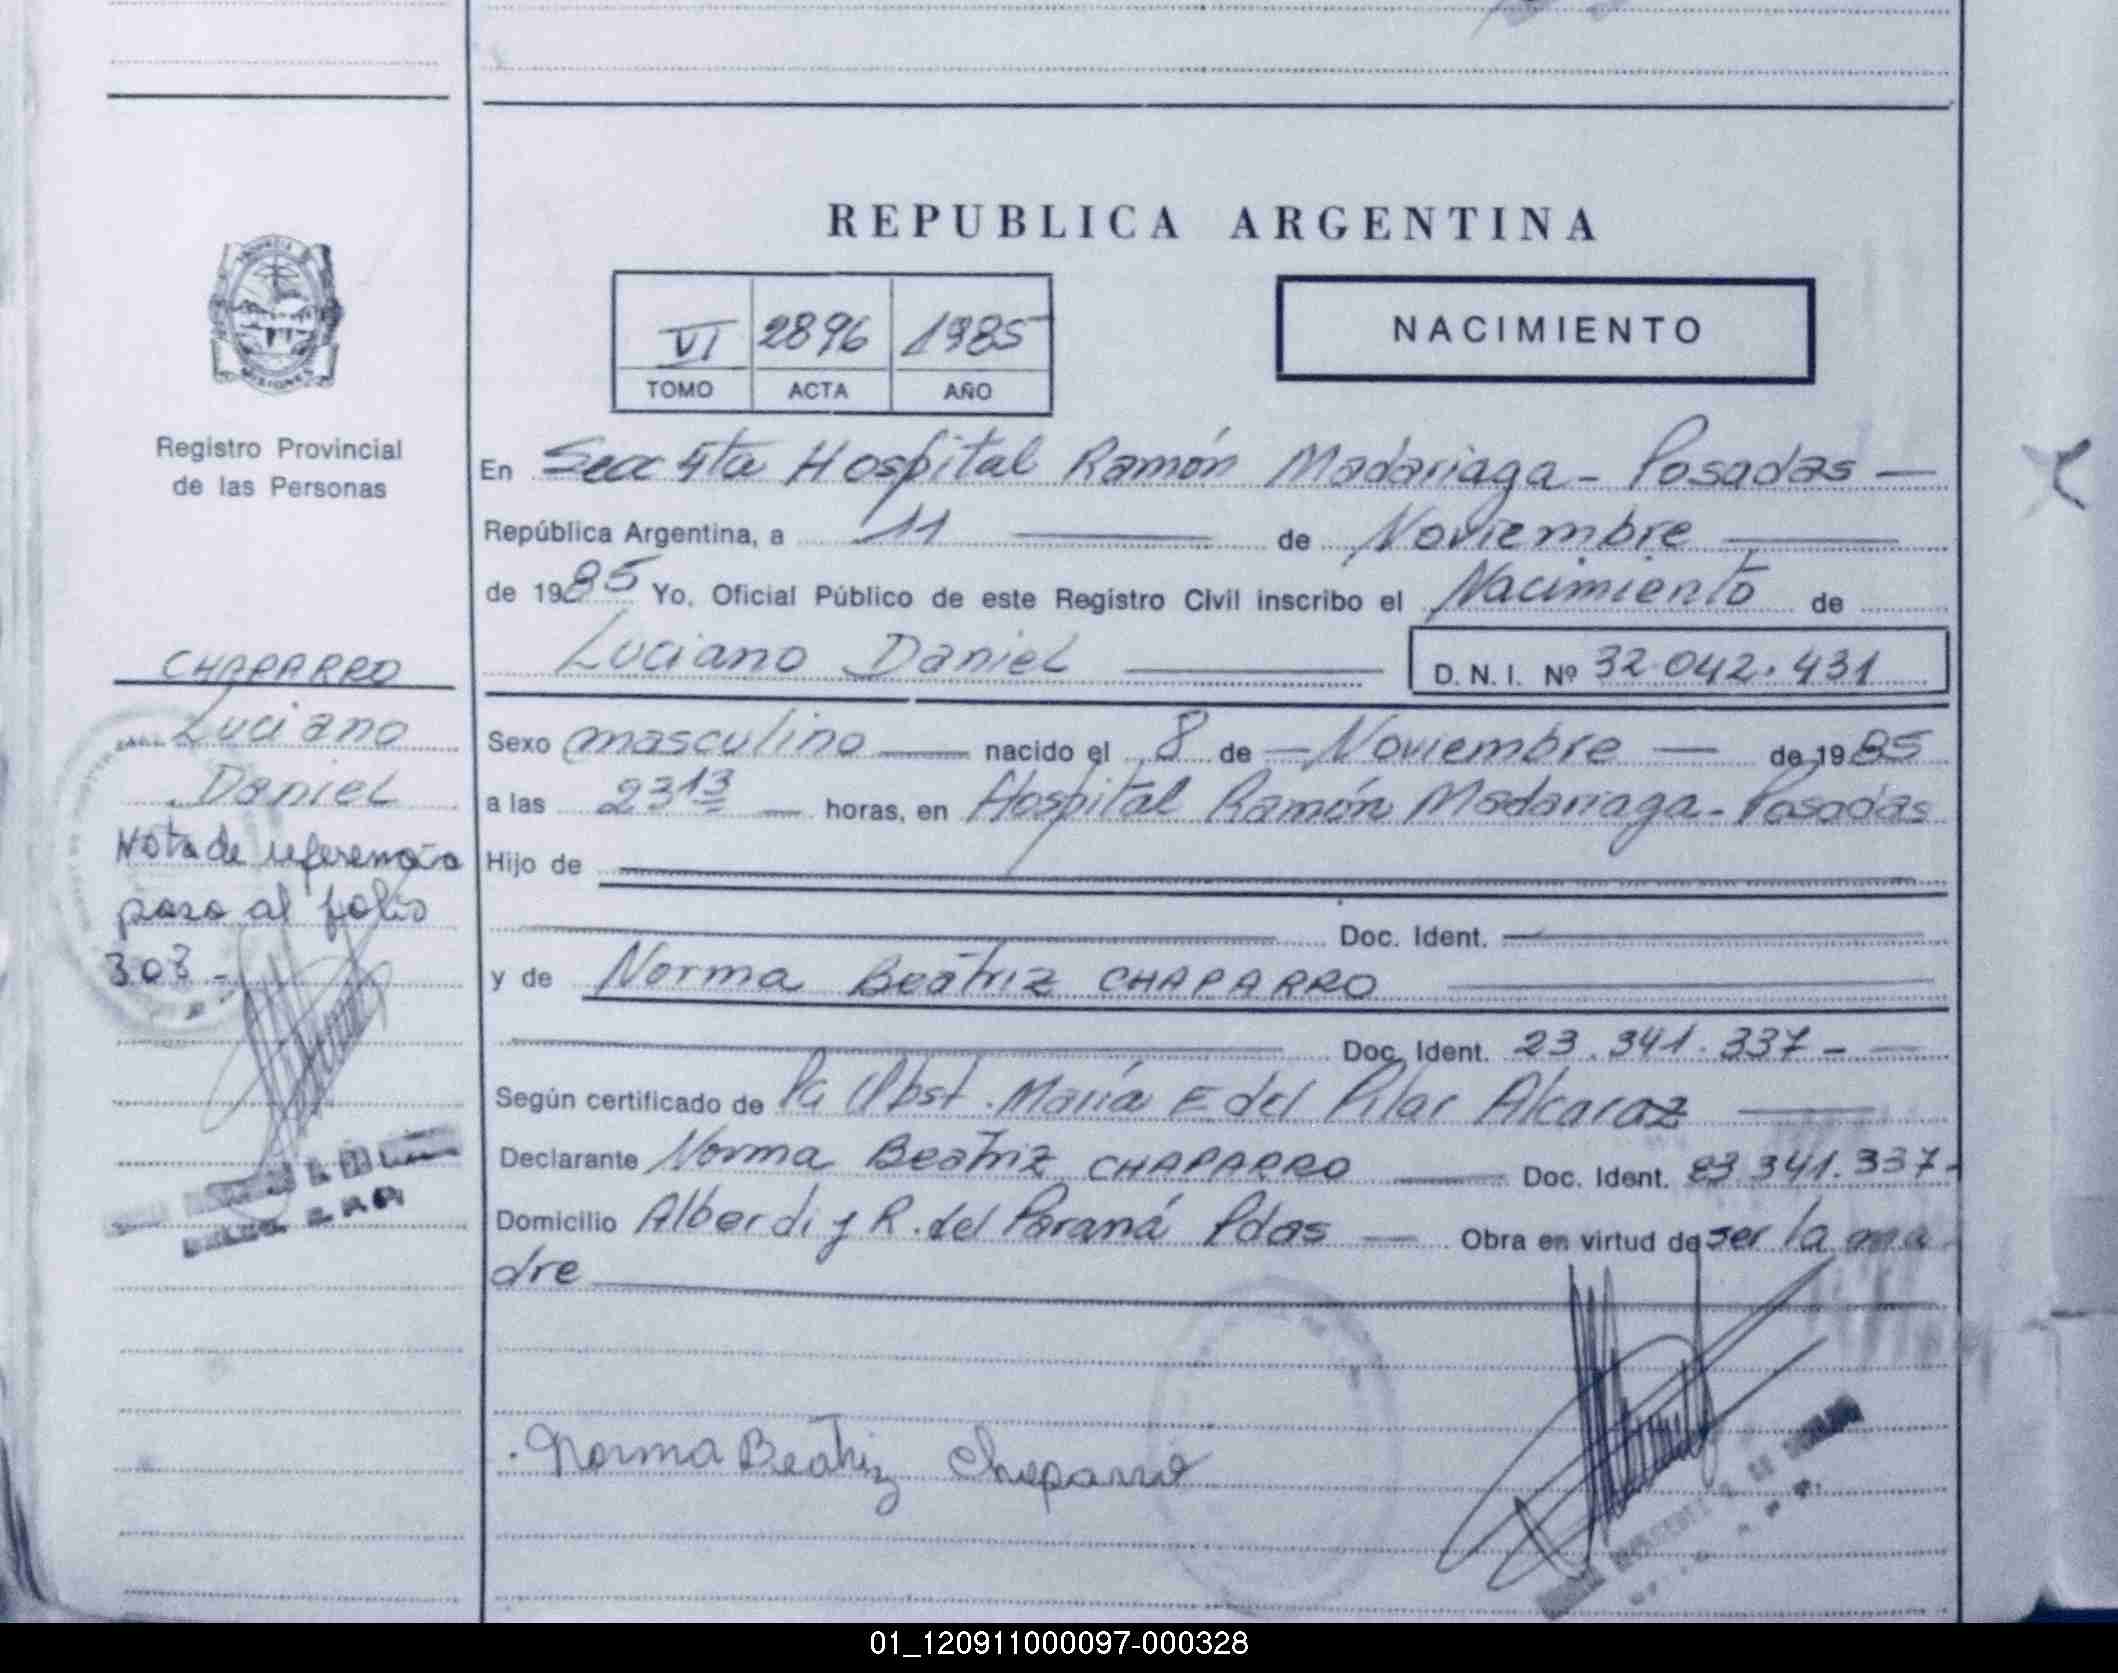 REPUBLICA ARGENTINA
VI 2896 1985
TOMO ACTA AÑO
NACIMIENTO
PROVINCIA
MISIONES
Registro Provincial
de las Personas
En Secc 5ta Hospital Ramón Madariaga - Posadas —
República Argentina, a 11 de Noviembre
de 1985 Yo, Oficial Público de este Registro Civil inscribo el Nacimiento de
Luciano Daniel D. N. I. Nº 32.042.431
CHAPARRO
Luciano
Daniel
Nota de referencia
pasa al folio
303 -
Sexo masculino nacido el 8 de Noviembre de 1985
a las 23 13 horas, en Hospital Ramón Madariaga - Posadas
Hijo de
Doc. Ident.
y de Norma Beatriz CHAPARRO
Doc. Ident. 23.341.337 -
Según certificado de la Obst. María E del Pilar Alcaraz
Declarante Norma Beatriz CHAPARRO Doc. Ident. 23.341.337-
Domicilio Alberdi y R. del Paraná Pdas Obra en virtud de ser la ma
dre
Norma Beatriz Chaparro
01_120911000097-000328